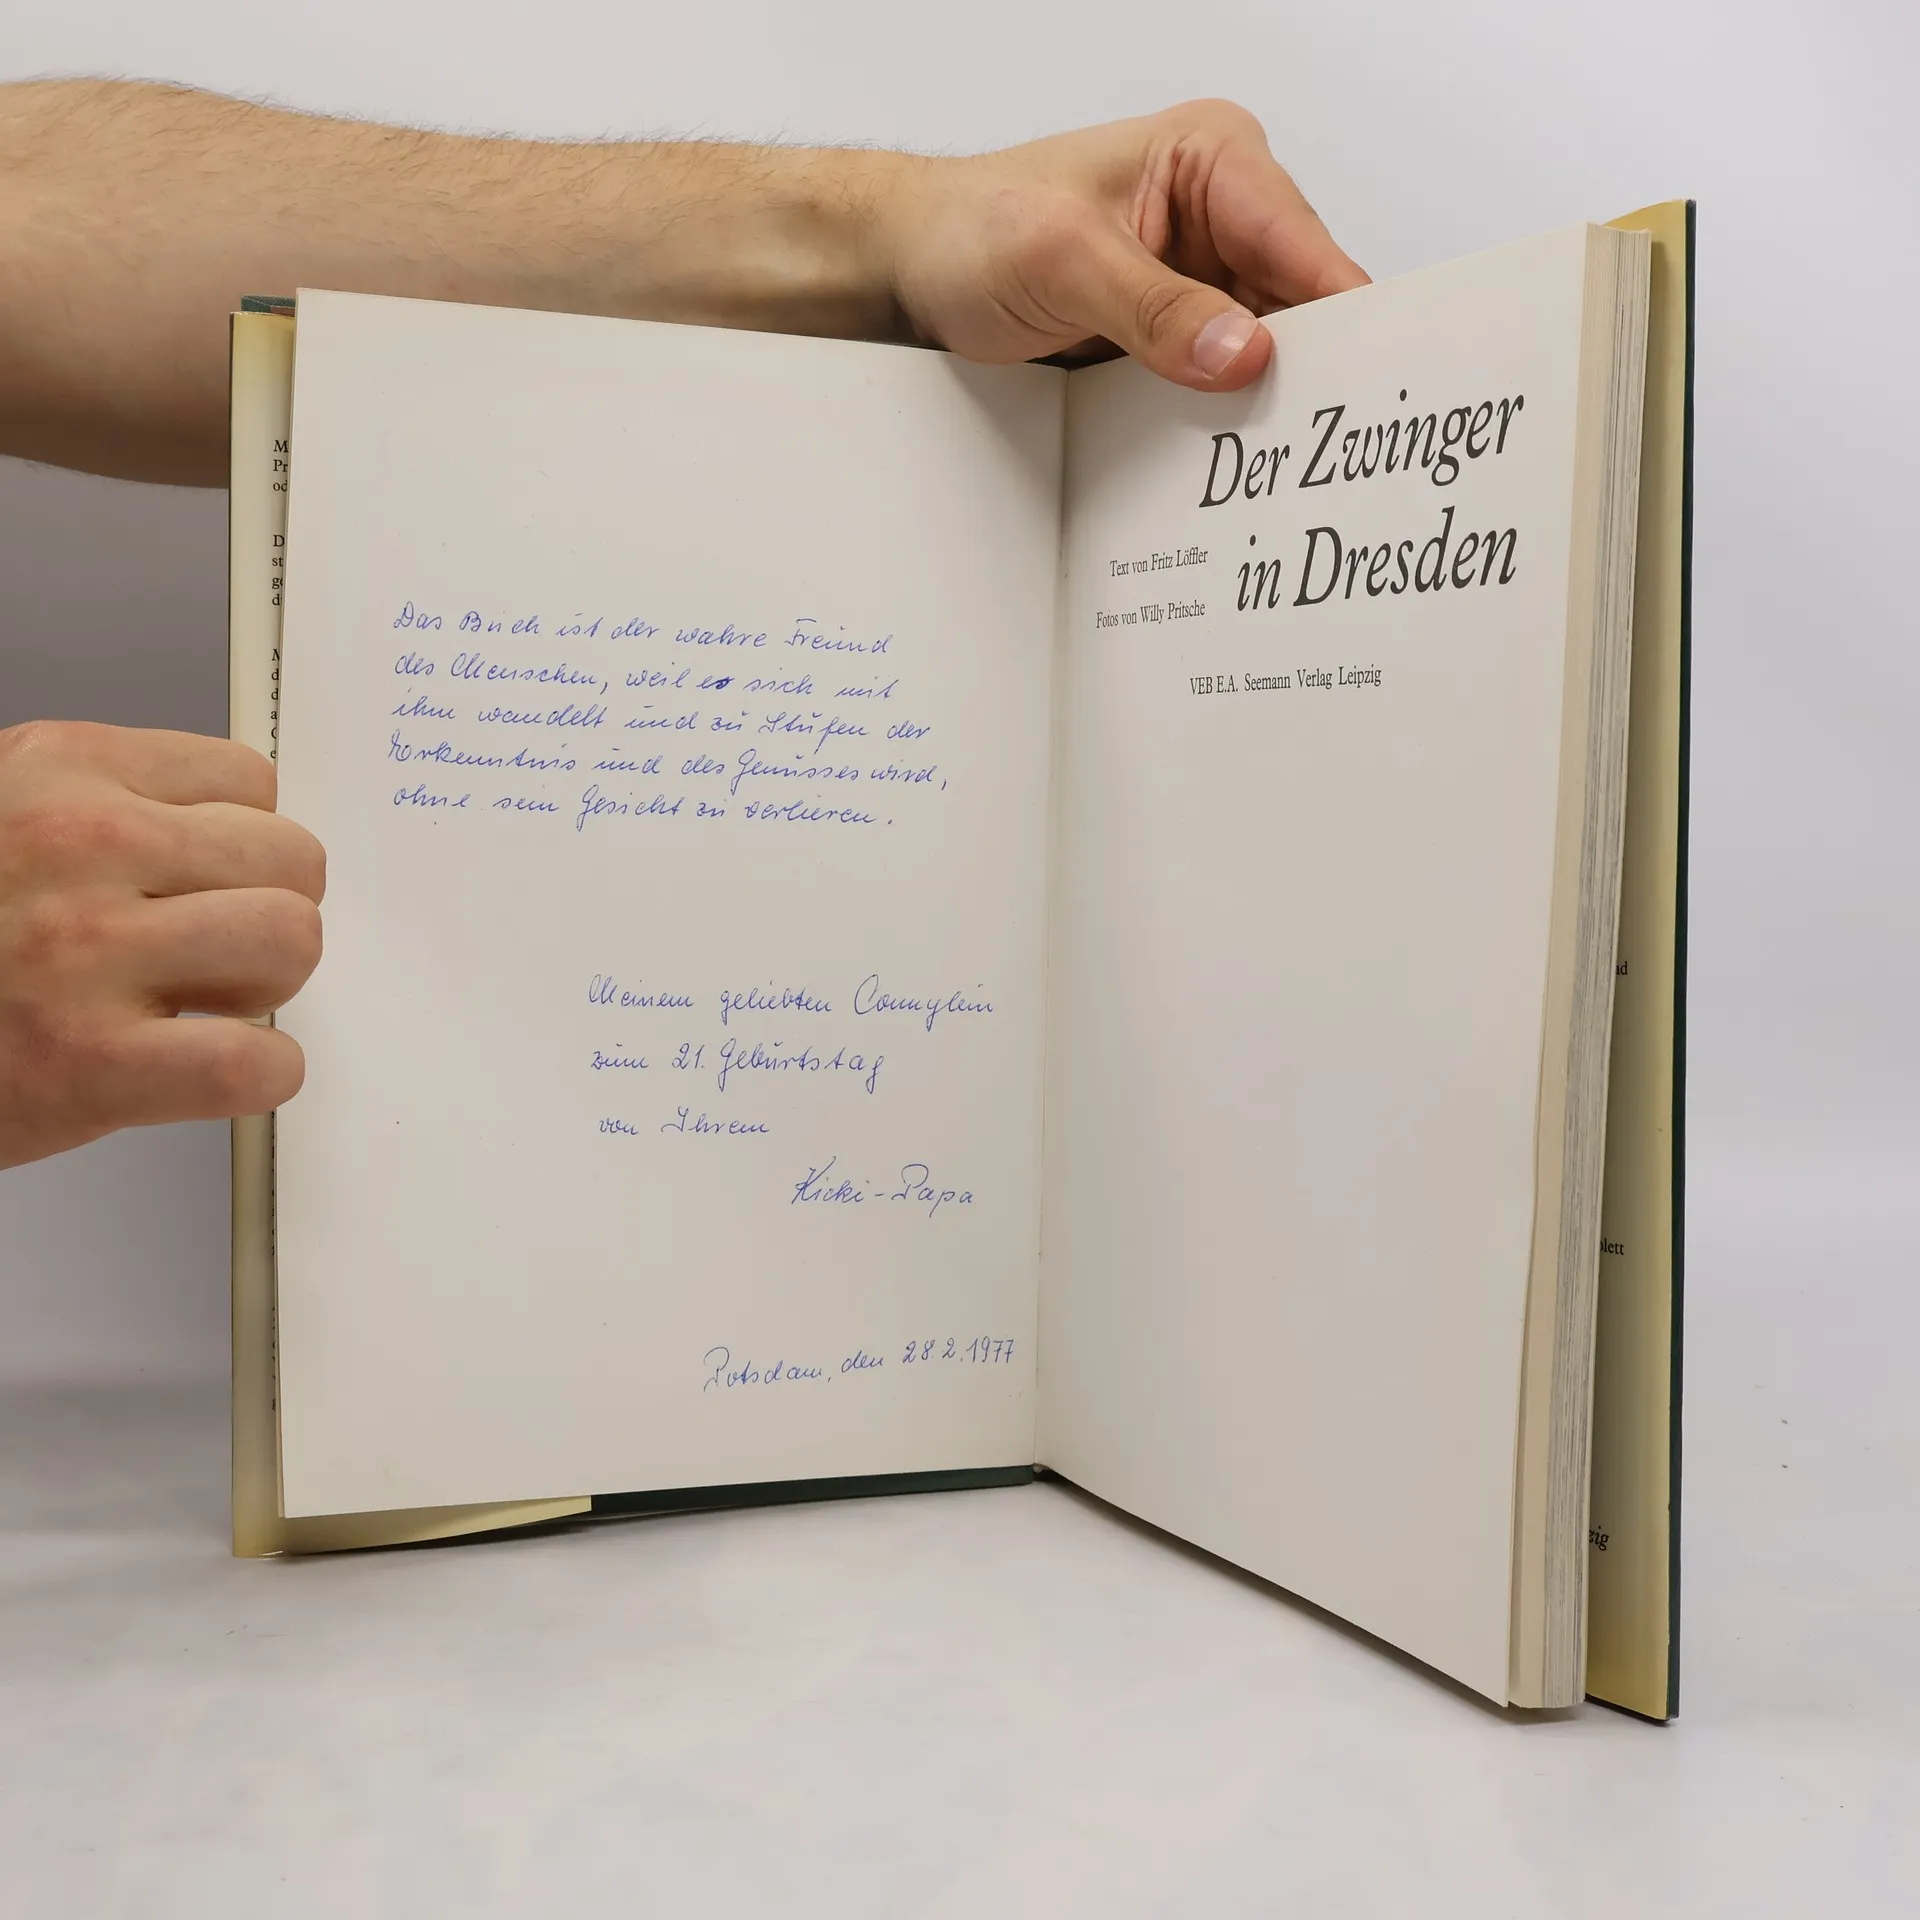 Das Buch ist der wahre Freund
des Menschen, weil es sich mit
ihm wandelt und zu Stufen der
Erkenntnis und des Genusses wird,
ohne sein Gesicht zu verlieren.
Meinem geliebten Connylein
zum 21. Geburtstag
von Ihrem
Kicki-Papa
Potsdam, den 28.2.1977
Der Zwinger
in Dresden
Text von Fritz Löffler
Fotos von Willy Pritsche
VEB E.A. Seemann Verlag Leipzig